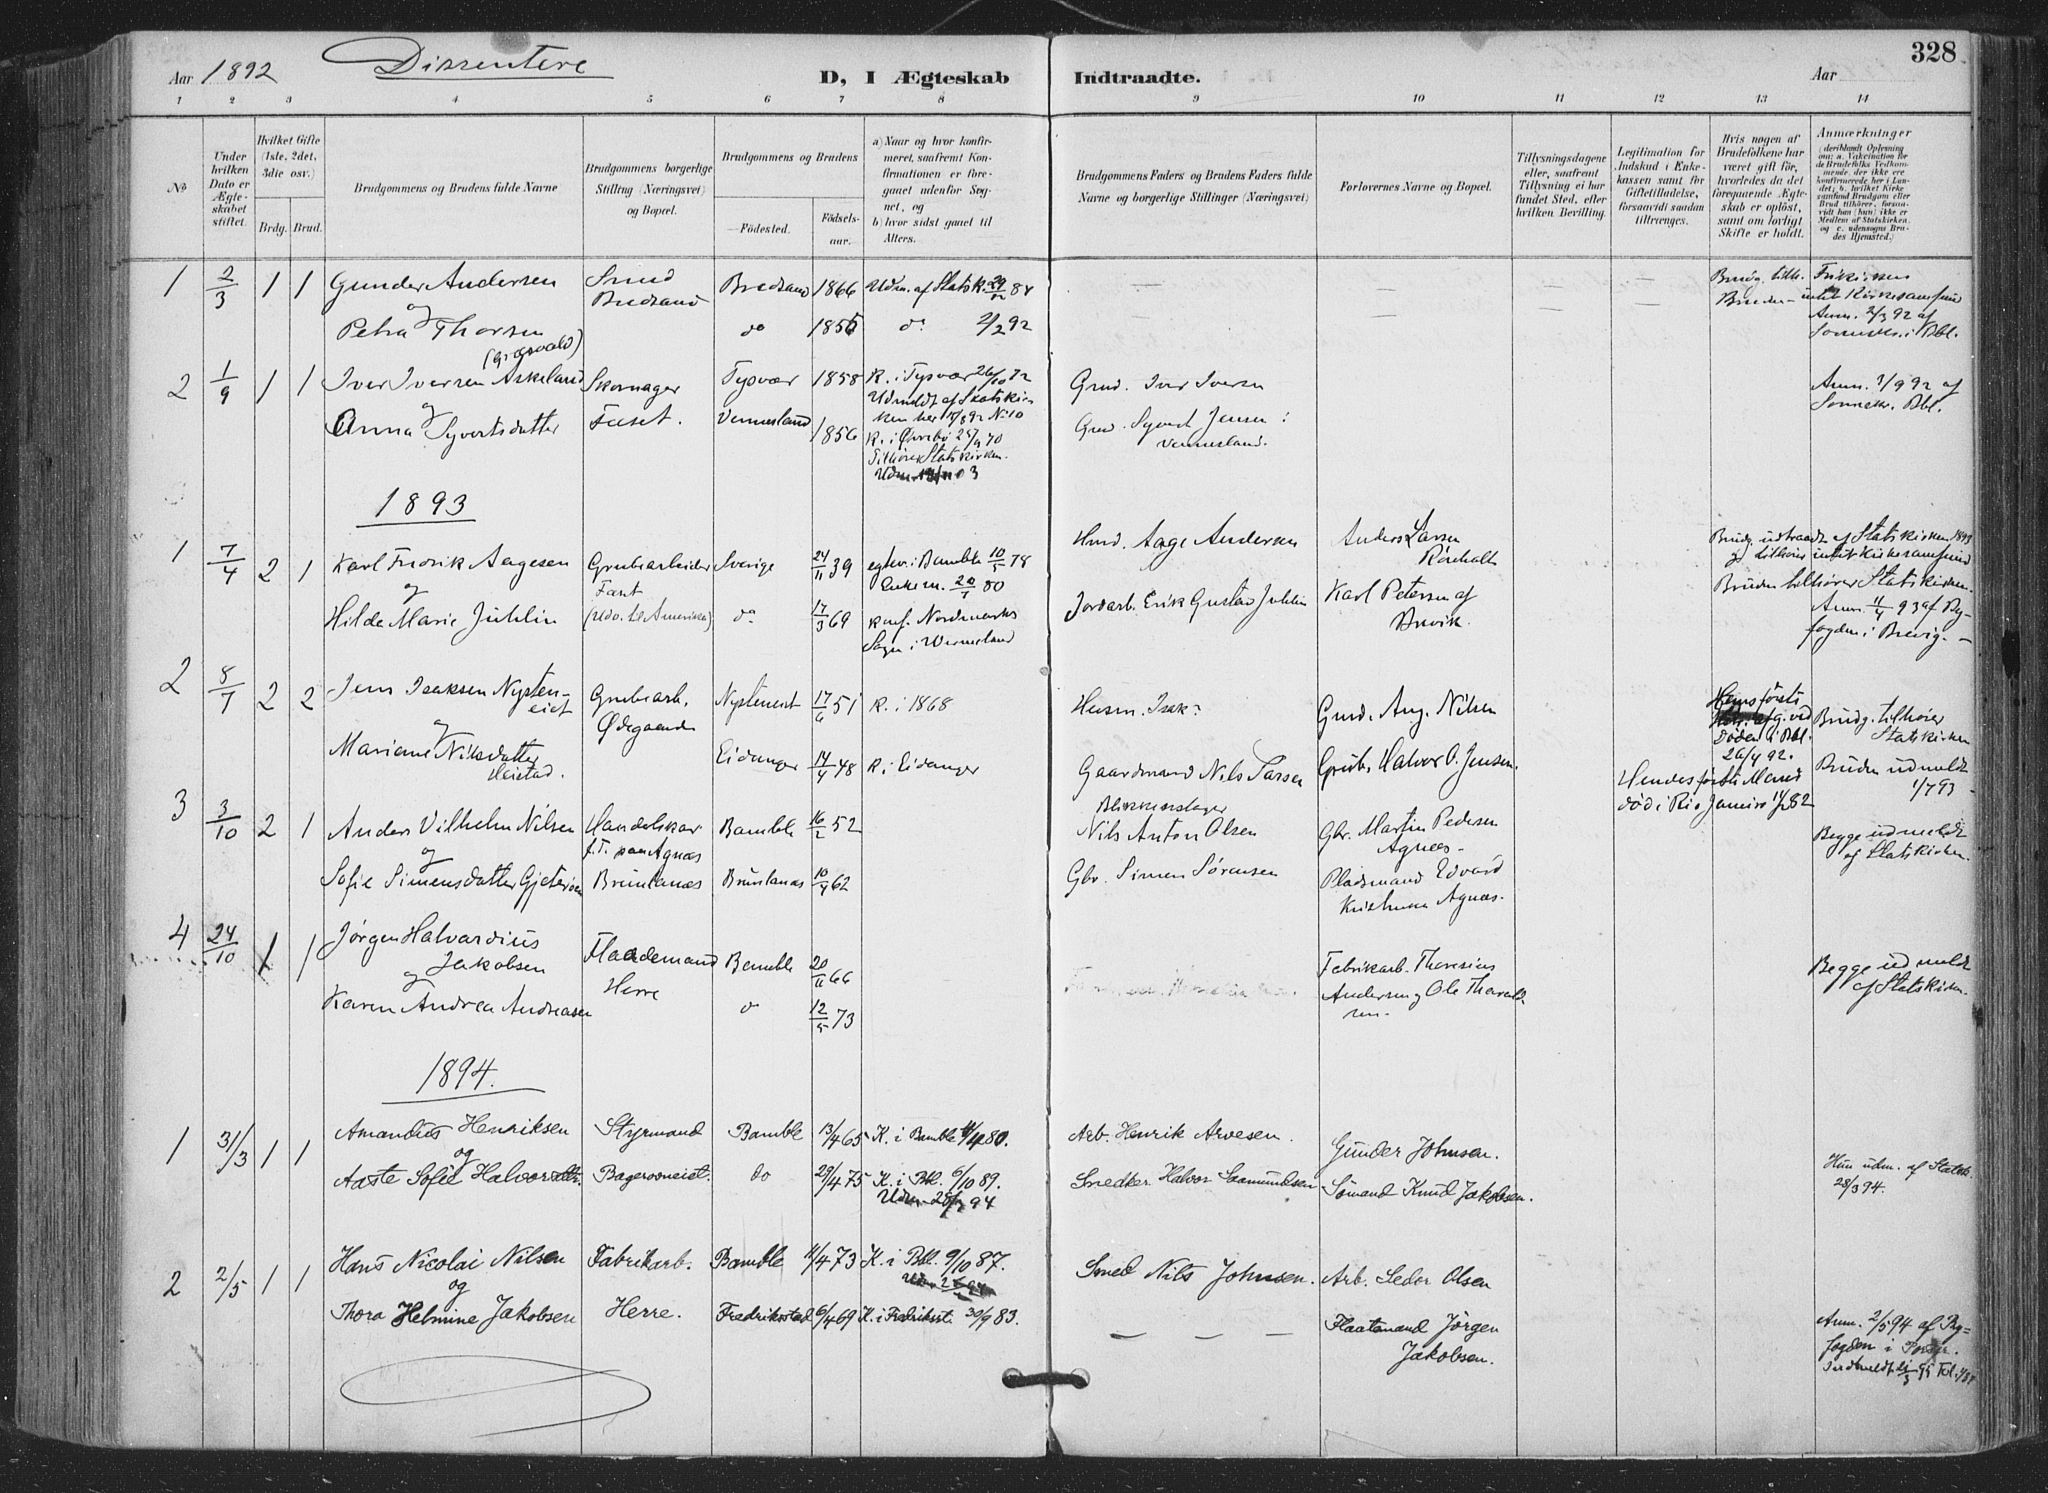 328
Aar 1892
Dissentere
D, I Ægteskab
Indtraadte.
Aar
1 2 3 4 5 6 7 8 9 10 11 12 13 14
No
Under hvilken Dato er Ægteskabet stiftet.
Hvilket Gifte (1ste, 2det, 3die osv.)
Brdg. Brud.
Brudgommens og Brudens fulde Navne
Brudgommens borgerlige Stilling (Næringsvei) og Bopæl.
Brudgommens og Brudens
Fødested.
Fødselsaar.
a) Naar og hvor konfirmeret, saafremt Konfirmationen er foregaaet udenfor Sognet, og
b) hvor sidst gaaet til Alters.
Brudgommens Faders og Brudens Faders fulde Navne og borgerlige Stillinger (Næringsvei)
Forlovernes Navne og Bopæl.
Tillysningsdagene eller, saafremt Tillysning ei har fundet Sted, efter hvilken Bevilling.
Legitimation for Indskud i Enkekassen samt for Giftetilladelse, forsaavidt saadan tiltrænges.
Hvis nogen af Brudefolkene har været gift før, hvorledes da det foregaaende Ægteskab er opløst, samt om lovligt Skifte er holdt.
Anmærkninger (deriblandt Oplysning om: a. Vakcination for de Brudefolks Vedkommende, der ikke ere konfirmerede her i Landet; b. hvilket Kirkesamfund Brudgom eller Brud tilhører, forsaavidt han (hun) ikke er Medlem af Statskirken, og c. udensogns Brudes Hjemsted.)
1 2/3 1 1 Gunder Andersen Smed Bredsand Bredsand 1866 Udm. af Statsk. 84 Brudg. tilh. Frikirken
og Bruden intet Kirkesamfund
Petra Thorsen do 1855 do 2/2 92 Anm. 2/3 92 af
(Græsvald) Sorensk. i Bbl.
2 1/9 1 1 Iver Iversen Askeland Skomager Tysvær 1858 K. i Tysvær 26/10 72 Grd. Iver Iversen Anm. 1/9 92 af
og Udmeldt af Statskirken her No 10 Sorenskr. Bbl.
Anna Syvertsdatter Vennesland 1856 K. i Øvrebø 70 Syvert Jensen
Tilhører Statskirken. Vennesland.
1893
1 7/4 2 1 Karl Fredrik Aagesen Grubearbeider Sverige 24/11 39 egtev. i Bamble 10/5 78 Aage Andersen Anders Larsen Rønholt Brudg. udtraadt af Statskirken 1893
og Enkem. 20/1 80 og tilhører intet Kirkesamfund
Hilde Marie Juhlin (udv. til Amerika) do 17/3 69 konf. Nordmarks Jordarb. Erik Gustav Juhlin Karl Petersen af Brevik. Bruden tilhører Statskirken.
Sogn i Wermeland Anm. 11/4 93 af Byfogden i Brevig.
2 8/7 2 2 Jens Isaksen Nysteneiet Grubearb. Nysteneiet 17/6 51 K. i 1868 Husm. Isak Aug. Nilsen Hans første Døden i Bbl. 26/4 92. Brudg. tilhører Statskirken
og Ødegaarden
Mariane Nilsdatter Eidanger 14/4 48 K. i Eidanger Gaardmand Nils Larsen Grub. Halvor O. Jensen. Hendes første Mand død i Rio Janeiro 82 Bruden udmeldt 1/7 93
Heistad.
3 3/10 2 1 Anders Vilhelm Nilsen Handelskar. Bamble 16/2 52 Blikkenslager Nils Anton Olsen Gbr. Martin Pedersen Agnæs Begge udmeldt af Statskirken.
og f.T. paa Agnæs
Sofie Simensdatter Gjeterøen Brunlanæs Brunlanæs 10/4 62 Gbr. Simen Sørensen Pladsmand Edvard Agnæs.
4 24/10 1 1 Jørgen Halvardius Jakobsen Flaademand Bamble 20/11 66 Fabrikarb. Begge udmeldt af Statskirken.
og Herre
Karen Andrea Andreasen do 12/5 73 Andersen og Ole
1894.
1 31/3 1 1 Amandus Henriksen Styrmand Bamble 13/4 65 K. i Bamble 80. Arb. Henrik Arvesen. Gunder Johnsen.
og
Aaste Sofie Halvorsdtr. do 29/4 75 K. i Bbl. 6/10 89. Snedker Halvor Saamundsen Sømand Knud Jakobsen. Hun udm. af Statsk. 28/3 94.
Udm. 28/3 94
2 2/5 1 1 Hans Nicolai Nilsen Fabrikarb. Bamble 11/4 73 K. i Bbl. 9/10 87. Smed Nils Johnsen. Arb. Olsen
og
Thora Helmine Jakobsen Herre. Fredriksstad 6/4 69 K. i Fredrikst. 30/9 83. Flaatemand Jørgen Jakobsen. Anm. 2/5 94 af Byfogden i